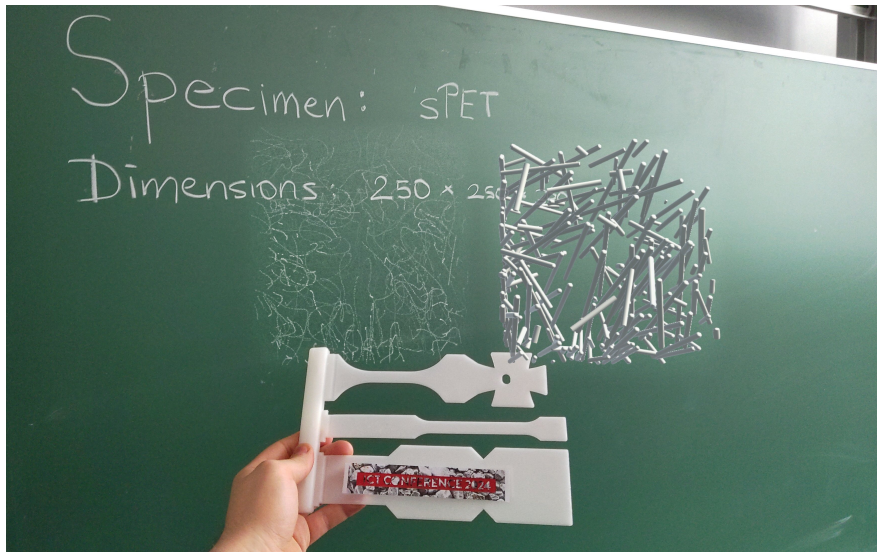 Specimen: sPET
Dimensions: 250 ×
iCT CONFERENCE 2024